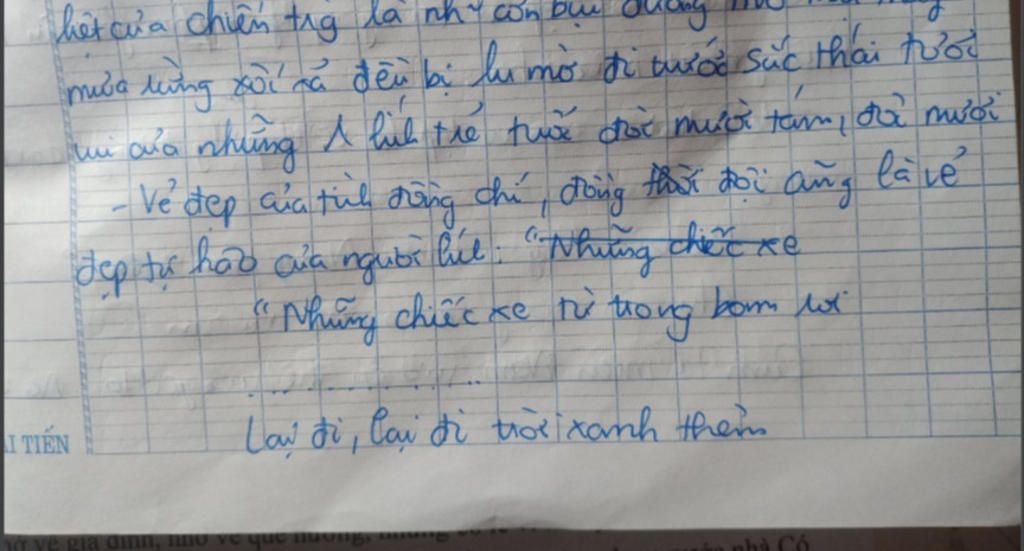 hết của chiến trg là như cơn bụi đường
mưa rừng xối xả đều bị lu mờ đi trước sức thái tươi
vui của những A lính trẻ tuổi đời mười tám, đôi mươi
- Vẻ đẹp của tình đồng chí, đồng đội cũng là vẻ
đẹp tự hào của người lính: "Những chiếc xe
"Những chiếc xe từ trong bom rơi
....................
Lại đi, lại đi trời xanh thêm
I TIẾN
về gia đình, nhớ về quê hương, những
nhà Có